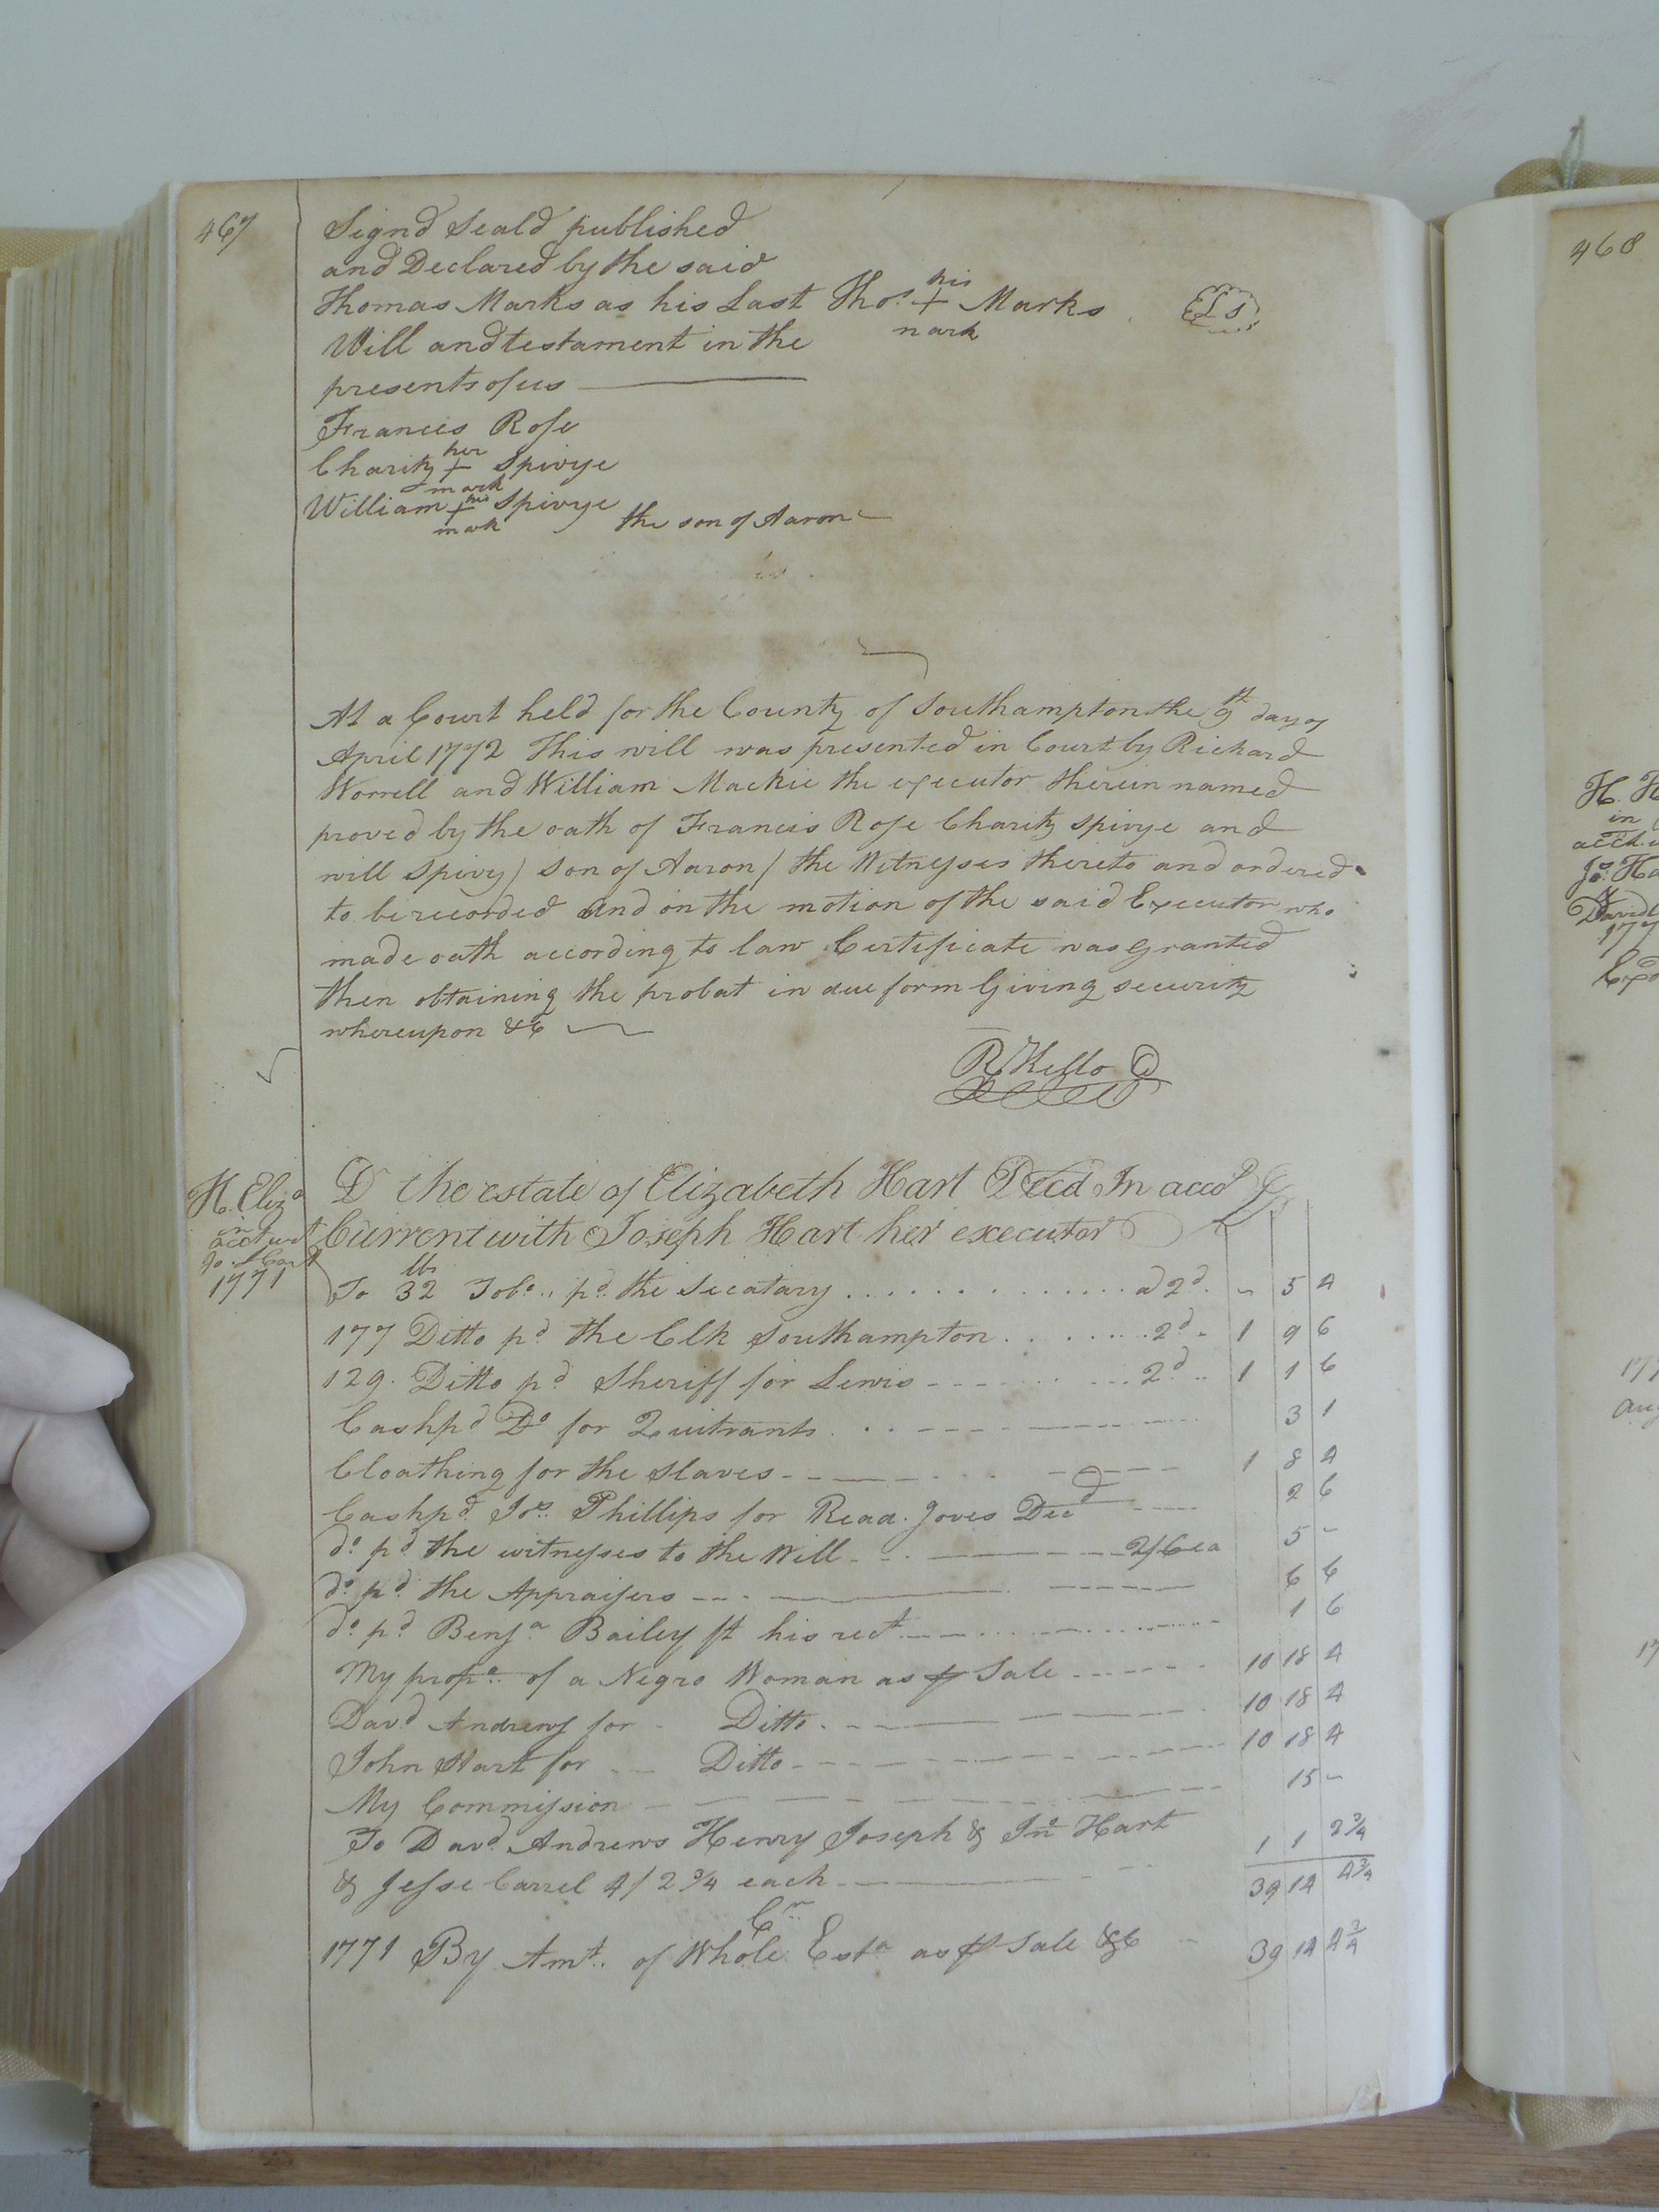 467
Signd Seald published
and Declared by the said
Thomas Marks as his Last Thos. his + mark Marks Ls
Will and testament in the
presents of us
Francis Rose
Charity her + mark Spivye
William his + mark Spivye the son of Aaron
At a Court held for the County of Southampton the 9th day of
April 1772 This will was presented in Court by Richard
Worrell and William Mackie the executor therein named
proved by the oath of Francis Rose Charity Spivye and
will Spivy / son of Aaron / the Witnesses thereto and ordered
to be recorded And on the motion of the said Executor who
made oath according to law Certificate was Granted
then obtaining the probat in due form Giving security
whereupon &c
R Kello
H. Eliza
in
acct wt
Jo. Hart
1771
Dr the estate of Elizabeth Hart Decd In accot
Current with Joseph Hart her executor
To 32 lb Tobo.. pd. the Secatary a 2d. - 5 4
177 Ditto pd the Clk Southampton 2d. 1 9 6
129. Ditto pd Sheriff for Lewis 2d .. 1 1 6
Cash pd Do for Quitrants 3 1
Cloathing for the Slaves 1 8 4
Cash pd. Jos. Phillips for Read. Joves Decd 2 6
do. pd the witnesses to the Will 2/6 ea 5 -
do. pd. the Appraisers 6 6
do. pd Benja Bailey his rect 1 6
My propo.. of a Negro Woman as Sale 10 18 4
Davd Andrews for Ditto 10 18 4
John Hart for Ditto 10 18 4
My Commission 15 -
To Davd. Andrews Henry Joseph & Jno Hart
& Jesse Carrel 4/2 3/4 each 1 1 2 3/4
39 14 4 3/4
Cr
1771 By Amt. of Whole Esta as Sale &c 39 14 4 3/4
468
H. H
in
Jos. Ha
David
177